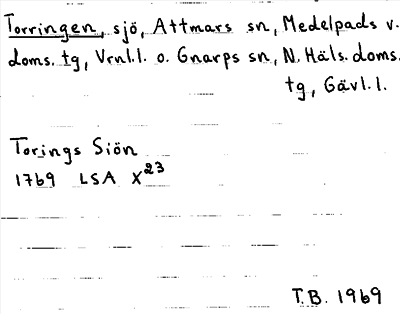 Torringen, sjö, Attmars sn, Medelpads v.
doms. tg, Vrnl.l. o. Gnarps sn, N. Häls. doms.
tg, Gävl. l.
Torings Siön
1769 LSA X²³
T.B. 1969